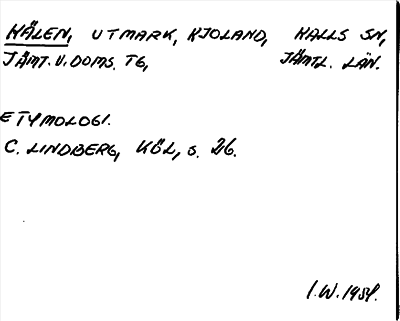 HÄLEN, UTMARK, KJOLAND, HALLS SN,
JÄMT. V. DOMS. TG, JÄMTL. LÄN.
ETYMOLOGI.
C. LINDBERG, KÖL, S. 26.
I.W. 1954.